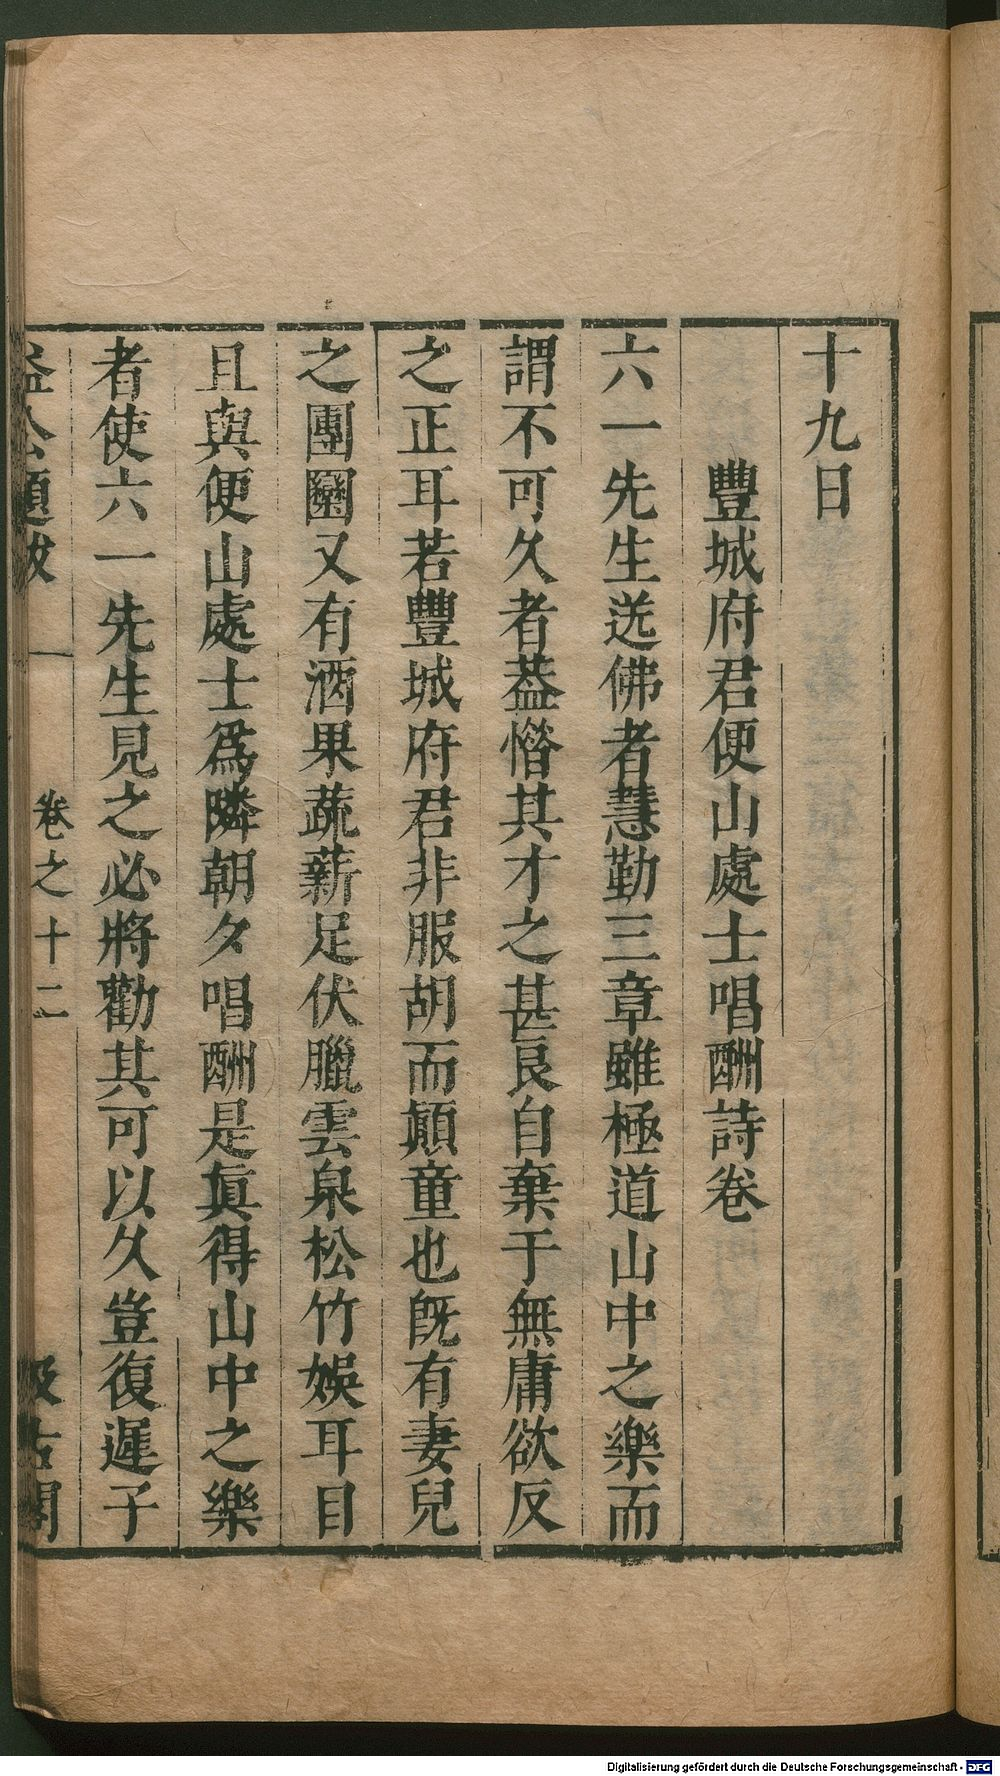 十九日
豐城府君便山處士唱酬詩卷
六一先生送佛者慧勤三章雖極道山中之樂而
謂不可久者葢惜其才之甚良自棄于無庸欲反
之正耳若豐城府君非服胡而顛童也旣有妻兒
之團圞又有酒果蔬薪足伏臘雲泉松竹娛耳目
且與便山處士爲隣朝夕唱酬是眞得山中之樂
者使六一先生見之必將勸其可以久豈復遲子
益公題跋
卷之十二
汲古閣
Digitalisierung gefördert durch die Deutsche Forschungsgemeinschaft - DFG